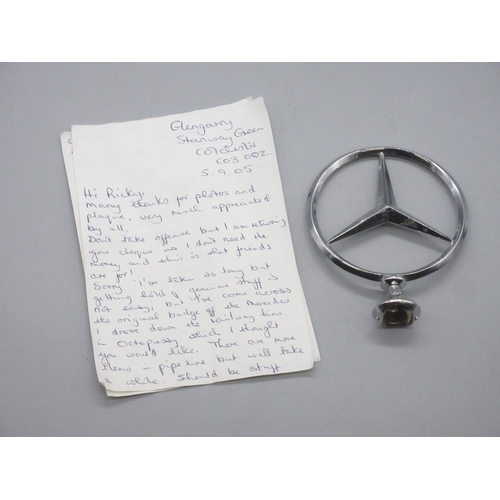 Glengarry
Stanway Green
Colchester
CO3 0QZ
5.9.05
Hi Ricky,
Many thanks for photos and
plaque, very much appreciated
by all.
Don't take offense but I am returning
your cheque as I don't need the
money and this is what friends
are for!
Sorry I've taken so long but
getting hold of genuine stuff is
not easy, but I've come across
the original badge off the Mercedes
I drove down the railway line
in Octopussy which I thought
you would like. There are more
items in pipeline but will take
a while. Should be stuff